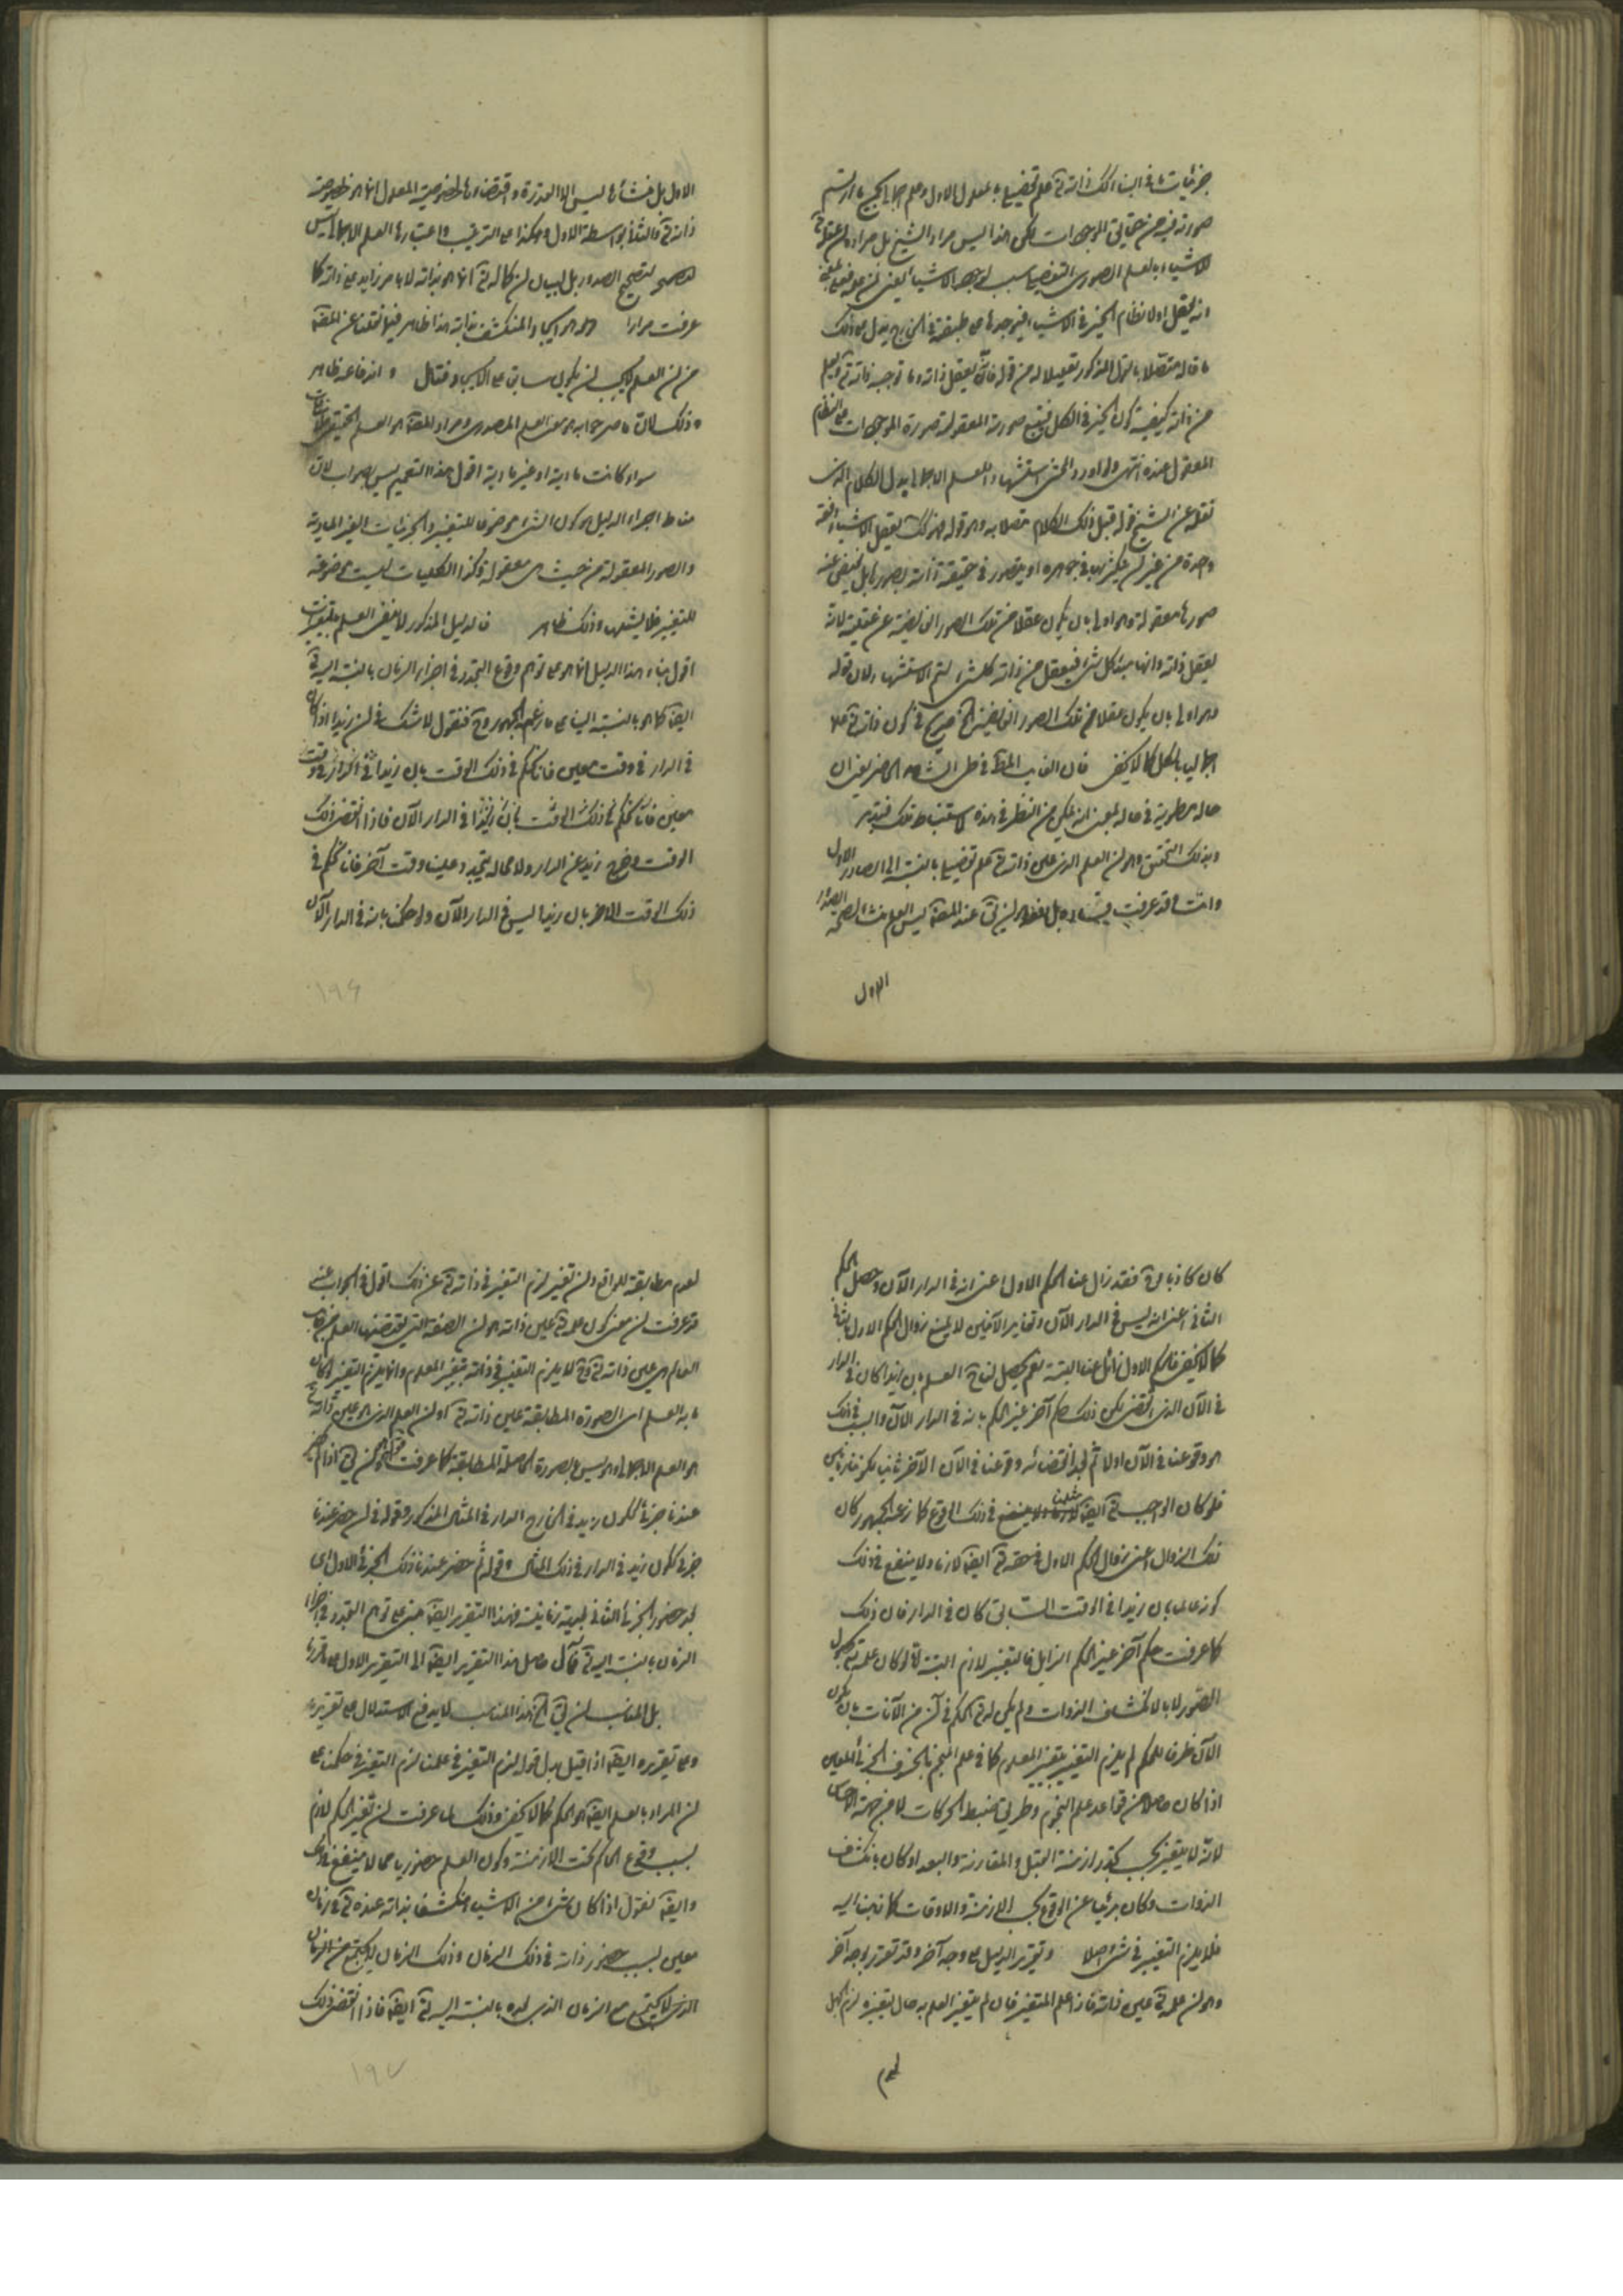 جزئياتها في البناء لك ذاته تع علم تفصيلي بالمعلول الاول وعلم اجمالي بالجميع ما ارتسم
صورته فيه من حقايق الموجودات لكن هذا ليس مراد الشيخ بل مراده ان
الاشياء بالعلم الصوري التفصيلي سبب لوجود الاشياء يعني ان
انه يعقل اولا نظام الخير في الاشياء فيوجدها على طبقه في الخارج يدل على ذلك
ما قاله متصلا بالقول المذكور تعليلا له من قوله فانه يعقل ذاته وما توجبه ذاته ويعلم
من ذاته كيفية كون الخير في الكل فيتبع صورته المعقولة صورة الموجودات على النظام
المعقول عنده انتهى ولو اورد المحشي استشهادا للعلم الاجمالي بدل الكلام الذي
نقله عن الشيخ قوله قبل ذلك الكلام متصلا به وهو قوله فهو لذلك يعقل الاشياء دفعة
واحدة من غير ان يتكثر بها في جوهره او يتصور في حقيقة ذاته بصورها بل تفيض عنه
صورها معقولة وهو اولى بان يكون عقلا من تلك الصور الفايضة عن عقليته لانه
يعقل ذاته وانها مبدء كل شيء فيعقل من ذاته كل شيء لتم الاستشهاد لان قوله
وهو اولى بان يكون عقلا من تلك الصور الفايضة الخ صريح في كون ذاته تع علما
اجماليا بالكل كما لا يخفى فان الغايب
حاله مطوية في حاله بمعنى انه تمكن من النظر في هذه لاستنباط تلك فتدبر
وبذلك التحقيق وهو ان العلم الذي هو عين ذاته تع علم تفصيلي بالنسبة الى الصادر الاول
وانت قد عرفت بل نقول ان عند المحققين ليس العلم منشأ لصحة الصدور
الاول
الاول بل منشأها ليس الا القدرة واقتضاءها لخصوصية المعلول انما هو لخصوصية
ذاته تع والثاني بواسطة الاول وهكذا على الترتيب واعتبار هذا العلم الاجمالي ليس
لتصحيح الصدور بل لبيان ان كماله تع انما هو بذاته لا بامر زايد على ذاته كما
عرفت مرارا هو الايجاد المنكشف بذاته هذا ظاهر فيما نقلنا عن المحقق
من ان العلم يجب ان يكون سابقا على الايجاد فتأمل واندفاعه ظاهر
وذلك لان ما مر جوابه هو معنى العلم المصدري ومراد المحقق هو العلم الحقيقي
سواء كانت مادية او غير مادية اقول هذا التعميم ليس بصواب لان
مناط اجراء الدليل هو كون الشيء موضوعا للتغير والجزئيات الغير المادية
والصور المعقولة من حيث هي معقولة وكذا الكليات ليست موضوعة
للتغير فلا يشملها وذلك ظاهر فالدليل المذكور لا ينفي العلم بالمتغيرات
اقول بناء هذا الدليل انما هو على توهم وقوع التجدد في اجزاء الزمان بالنسبة اليه تع
ايضا كما هو بالنسبة الينا على ما زعم الجمهور وح فنقول لا شك في ان زيدا اذا كان
في الدار في وقت معين فانا نحكم في ذلك الوقت بان زيدا في الدار في وقت
معين فانا نحكم في ذلك الوقت بان زيدا في الدار الآن فاذا انقضى ذلك
الوقت وخرج زيد عن الدار ولا محالة يتجدد علينا وقت آخر فانا نحكم في
ذلك الوقت الاخر بان زيدا ليس في الدار الآن ولو حكمنا بانه في الدار الآن
١٩٦
كان كاذبا فقد زال عنا الحكم الاول اعني انه في الدار الآن وحصل الحكم
الثاني اعني انه ليس في الدار الآن وتغاير الآنين لا يمنع زوال الحكم الاول
كما لا يخفى فالحكم الاول زائل عنا البتة نعم يحصل لنا ح العلم بان زيدا كان في الدار
في الآن الذي انقضى لكن ذلك حكم آخر غير الحكم بانه في الدار الآن والسبب في ذلك
هو وقوعنا في الآن اولا ثم بعد انقضائه وقوعنا في الآن الآخر ثانيا
فلو كان الواجب تع ايضا مثلنا ولا ينفع في ذلك الوقوع كما زعمه الجمهور كان
ذلك الزوال اعني زوال الحكم الاول في حقه تع ايضا لازما ولا ينفع في ذلك
كونه عالما بان زيدا في الوقت السابق كان في الدار فان ذلك
كما عرفت حكم آخر غير الحكم الزايل فالتغير لازم البتة ولو كان علمه تع
الصور لا بالانكشاف الذوات ولم يكن له تع الحكم في آن من الآنات بان يكون
الآن ظرفا للحكم لم يلزم التغير بتغير المعلوم كما في علم المنجم بالخسوف الجزئي المعين
اذا كان حاصلا من قواعد علم النجوم وطريق ضبط الحركات لا من جهة الاحساس
لانه لا يتغير بحسب تجدد ازمنة القبل والمقارنة والبعد او كان بانكشاف
الذوات وكان بريئا عن الوقوع بحسب الازمنة والاوقات كما ذهبنا اليه
فلا يلزم التغير في شيء اصلا وتقرير الدليل على وجه آخر وقد تقرر بوجه آخر
وهو ان علمه تع عين ذاته فاذا علم المتغير فان لم يتغير العلم به حال تغيره لزم الجهل
لعدم
لعدم مطابقته للواقع وان تغير لزم التغير في ذاته تع عن ذلك اقول في الجواب عنه
قد عرفت ان معنى كون علمه تع عين ذاته هو ان الصفة التي يقتضيها العلم
العالم هي عين ذاته تع وح لا يلزم التغير في ذاته بتغير المعلوم وانما يلزم التغير لو كان
ما به العلم اي الصورة المطابقة عين ذاته تع او ان العلم الذي هو عين ذاته تع
هو العلم الاجمالي وهو ليس بالصورة الحاصلة المطابقة كما عرفت
عندنا جزئي ككون زيد في الخارج الدار في المثال المذكور وقوله في ان حضر عندنا
جزئي ككون زيد في الدار في ذلك المثال وقوله ثم حضر عندنا ذلك الجزئي الاول اي
بعد حضور الجزئي الثاني بعدية زمانية فهذا التقرير ايضا مبني على توهم التجدد في اجزاء
الزمان بالنسبة اليه تع فمآل حاصل هذا التقرير ايضا الى التقرير الاول على ما قررنا
بل المناسب ان يق الخ هذا المناسب لا يدفع الاستدلال على تقريره
وعلى تقريره ايضا اذا قيل بدل قوله لزم التغير في علمنا لزم التغير في حكمنا على
ان المراد بالعلم ايضا هو الحكم كما لا يخفى وذلك لما عرفت ان تغير الحكم لازم
بسبب وقوع الحاكم تحت الازمنة وكون العلم حضوريا مما لا ينفع في ذلك
وايضا نقول اذا كان شيء من الاشياء منكشفا بذاته عنده تع في زمان
معين بسبب حضور ذاته في ذلك الزمان وذلك الزمان لا يجتمع مع الزمان
الذي لا يجتمع مع الزمان الذي بعده بالنسبة اليه تع ايضا فاذا انقضى ذلك
١٩٧